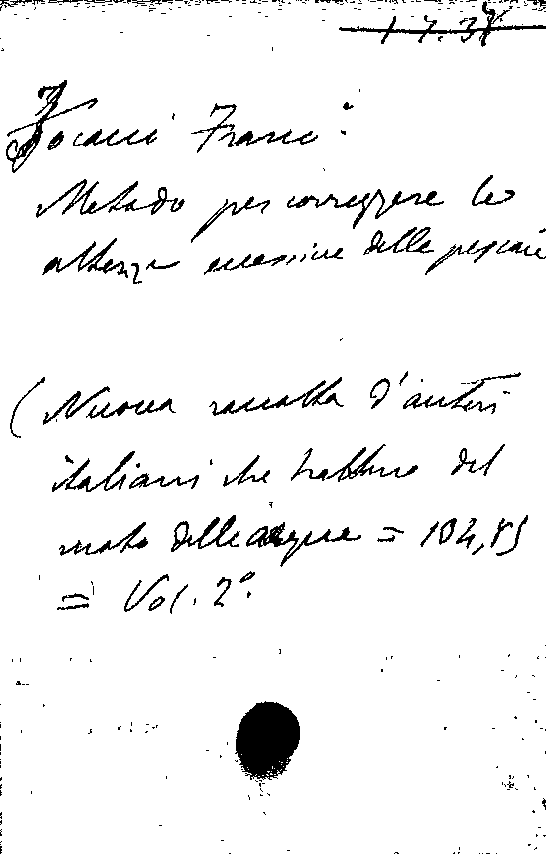 1 7. 37
Focacci Franc.º:
Metodo per correggere le
altezze eccessive delle pescaie
(Nuova raccolta d'autori
italiani che trattano del
moto delle acque = 104,85
= Vol. 2º.